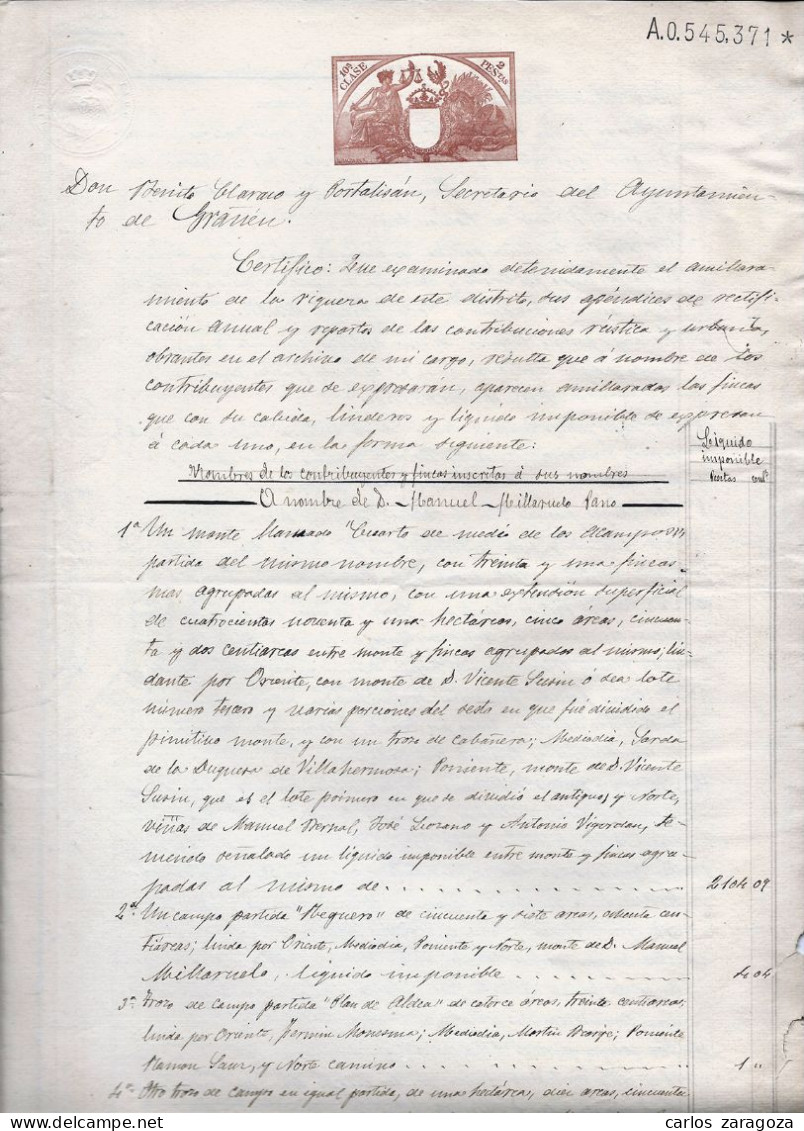 A.0.545.371*
10ª CLASE 2 PESETAS
Don Benito Claraco y Portalisán, Secretario del Ayuntamien-
to de Grañén.
Certifico: Que examinado detenidamente el amillara-
miento de la riqueza de este distrito, sus apéndices de rectifi-
cación anual y repartos de las contribuciones rústica y urbana,
obrantes en el archivo de mi cargo, resulta que á nombre de los
contribuyentes que se expresaran, aparecen amillaradas las fincas
que con su cabida, linderos y líquido imponible se expresan
á cada uno, en la forma siguiente:
Líquido
imponible
Pesetas cent.s
Nombres de los contribuyentes y fincas inscritas á sus nombres
A nombre de D. Manuel Millaruelo Pano
1ª Un monte llamado "Cuarto de medio de los Acampos"
partida del mismo nombre, con treinta y una fincas
mas agrupadas al mismo, con una extensión superficial
de cuatrocientas noventa y una hectáreas, cinco áreas, cincuen-
ta y dos centiareas entre monte y fincas agrupadas al mismo; lin-
dante por Oriente, con monte de D. Vicente Susin ó sea lote
número tercero y varias porciones del sesto en que fué dividido el
primitivo monte, y con un trozo de cabañera; Mediodia, Sarda
de la Duquesa de Villahermosa; Poniente, monte de D. Vicente
Susin, que es el lote primero en que se dividió el antiguo; y Norte,
viñas de Manuel Bernal, José Lozano y Antonio Vigordan, te-
niendo señalado un líquido imponible entre monte y fincas agru-
padas al mismo de .......... 2104 09
2ª Un campo partida "Reguero" de cincuenta y siete areas, ochenta cen-
tiareas; linda por Oriente, Mediodia, Poniente y Norte, monte de D. Manuel
Millaruelo, líquido imponible .......... 4 04
3ª Trozo de campo partida "Plan de Aldea" de catorce áreas, treinta centiareas,
linda por Oriente, Fermin Monesma; Mediodia, Martin; Poniente
Ramon Sanz, y Norte camino .......... 1 "
4ª Otro trozo de campo en igual partida, de una hectárea, diez areas, cincuenta
carlos zaragoza